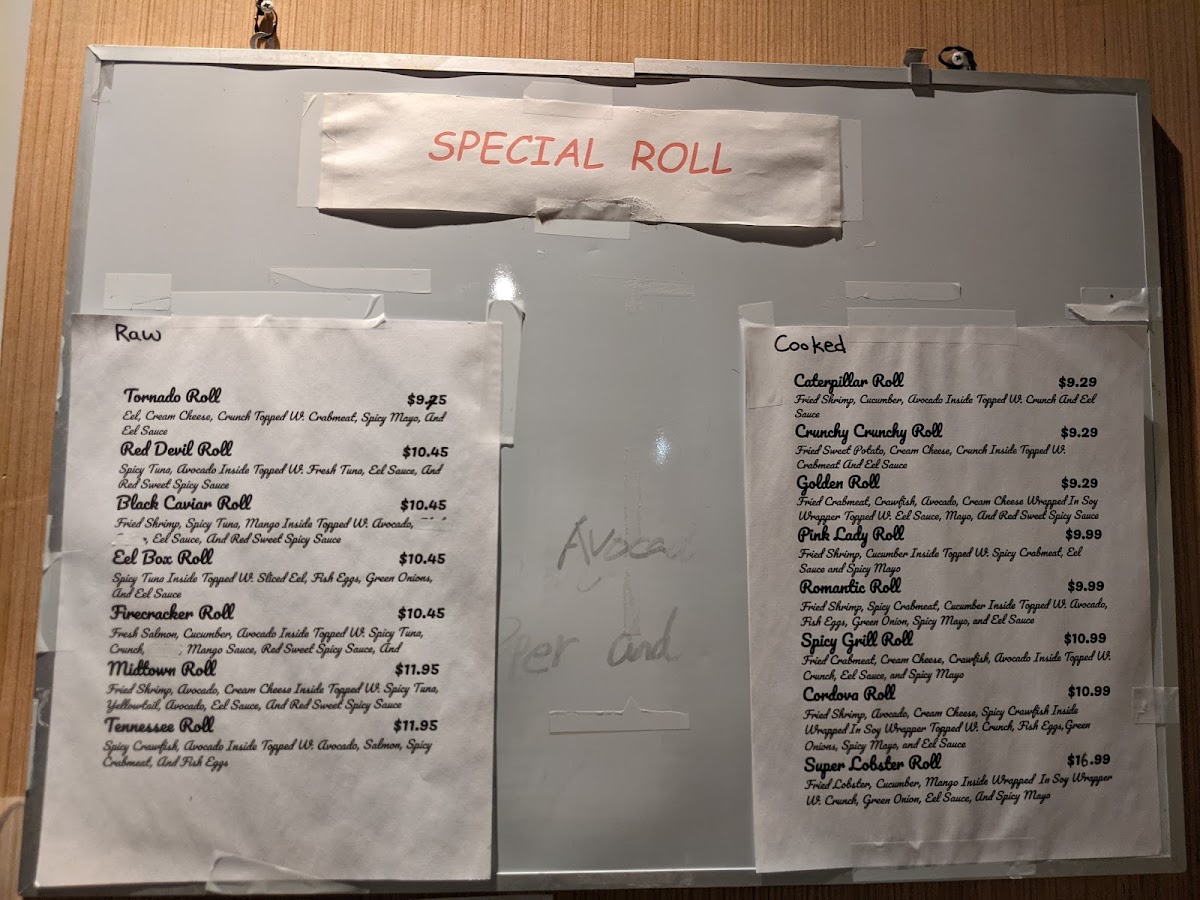 SPECIAL ROLL
Raw
Tornado Roll $9.75
Eel, Cream Cheese, Crunch Topped W. Crabmeat, Spicy Mayo, And
Eel Sauce
Red Devil Roll $10.45
Spicy Tuna, Avocado Inside Topped W. Fresh Tuna, Eel Sauce, And
Red Sweet Spicy Sauce
Black Caviar Roll $10.45
Fried Shrimp, Spicy Tuna, Mango Inside Topped W. Avocado,
, Eel Sauce, And Red Sweet Spicy Sauce
Eel Box Roll $10.45
Spicy Tuna Inside Topped W. Sliced Eel, Fish Eggs, Green Onions,
And Eel Sauce
Firecracker Roll $10.45
Fresh Salmon, Cucumber, Avocado Inside Topped W. Spicy Tuna,
Crunch, , Mango Sauce, Red Sweet Spicy Sauce, And
Midtown Roll $11.95
Fried Shrimp, Avocado, Cream Cheese Inside Topped W. Spicy Tuna,
Yellowtail, Avocado, Eel Sauce, And Red Sweet Spicy Sauce
Tennessee Roll $11.95
Spicy Crawfish, Avocado Inside Topped W. Avocado, Salmon, Spicy
Crabmeat, And Fish Eggs
and
Cooked
Caterpillar Roll $9.29
Fried Shrimp, Cucumber, Avocado Inside Topped W. Crunch And Eel
Sauce
Crunchy Crunchy Roll $9.29
Fried Sweet Potato, Cream Cheese, Crunch Inside Topped W.
Crabmeat And Eel Sauce
Golden Roll $9.29
Fried Crabmeat, Crawfish, Avocado, Cream Cheese Wrapped In Soy
Wrapper Topped W. Eel Sauce, Mayo, And Red Sweet Spicy Sauce
Pink Lady Roll $9.99
Fried Shrimp, Cucumber Inside Topped W. Spicy Crabmeat, Eel
Sauce and Spicy Mayo
Romantic Roll $9.99
Fried Shrimp, Spicy Crabmeat, Cucumber Inside Topped W. Avocado,
Fish Eggs, Green Onion, Spicy Mayo, and Eel Sauce
Spicy Grill Roll $10.99
Fried Crabmeat, Cream Cheese, Crawfish, Avocado Inside Topped W.
Crunch, Eel Sauce, and Spicy Mayo
Cordova Roll $10.99
Fried Shrimp, Avocado, Cream Cheese, Spicy Crawfish Inside
Wrapped In Soy Wrapper Topped W. Crunch, Fish Eggs,Green
Onions, Spicy Mayo, and Eel Sauce
Super Lobster Roll $16.99
Fried Lobster, Cucumber, Mango Inside Wrapped In Soy Wrapper
W. Crunch, Green Onion, Eel Sauce, And Spicy Mayo